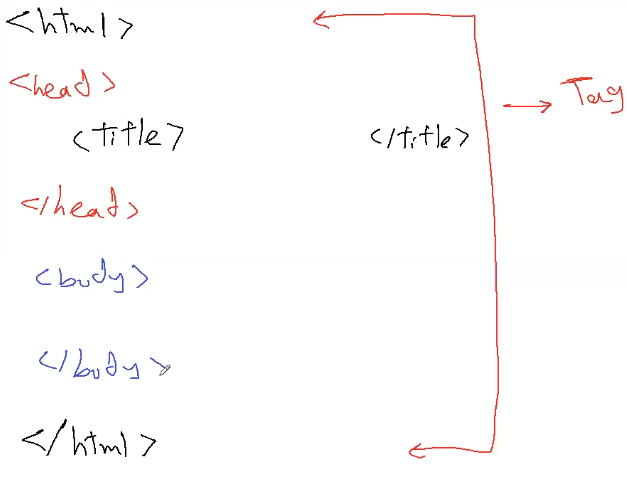 <html>
<head>
Tag
<title> </title>
</head>
<body>
</body>
</html>